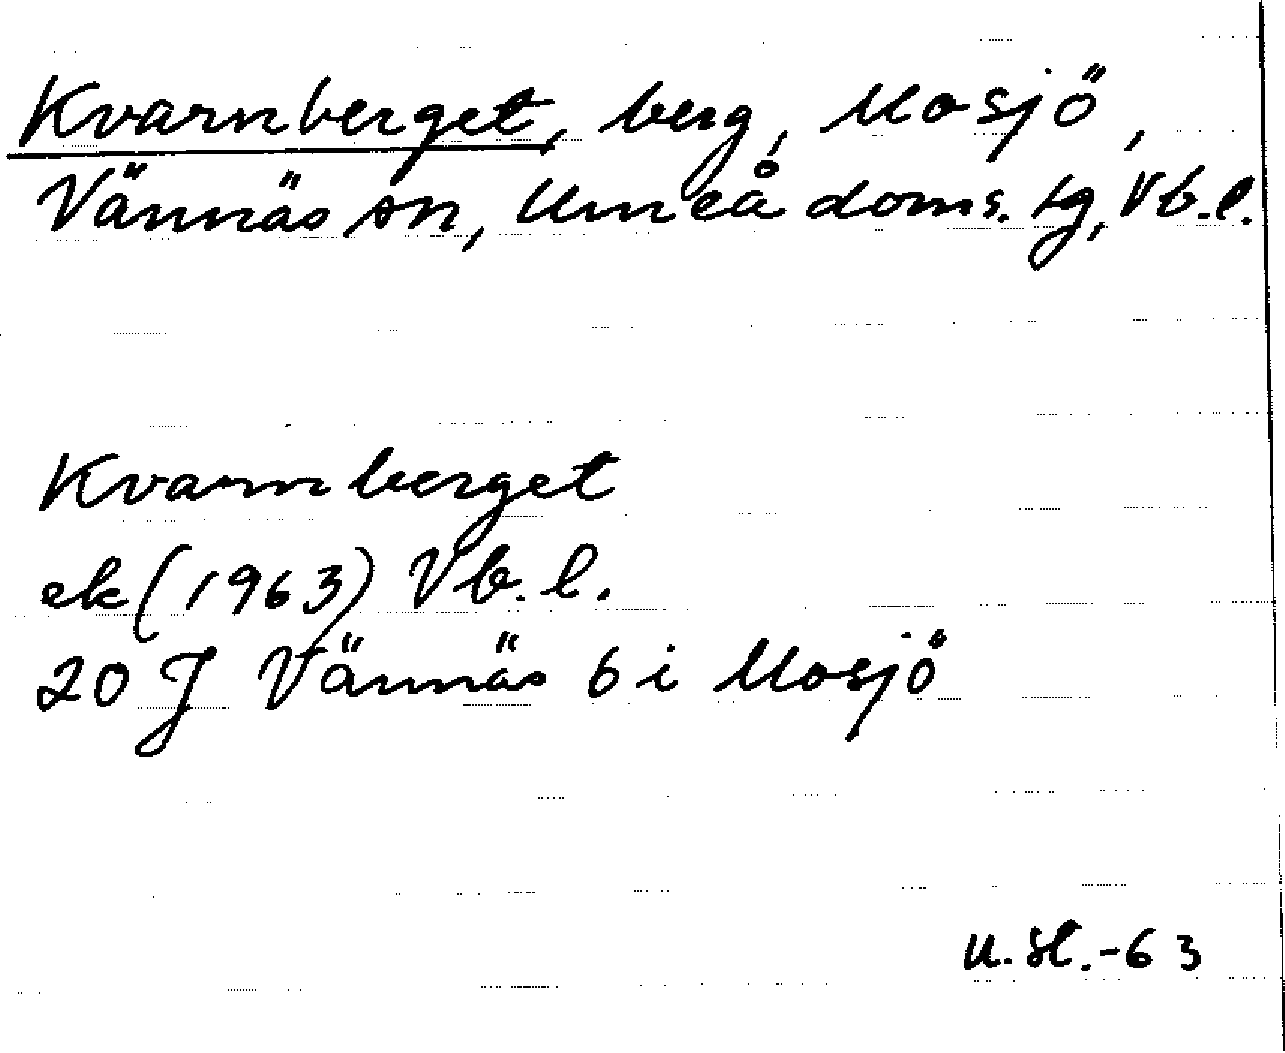 Kvarnberget, berg, Mosjö,
Vännäs sn, Umeå doms. tg, Vb. l.
Kvarnberget
ek (1963) Vb. l.
20 J Vännäs 6 i Mosjö
-63